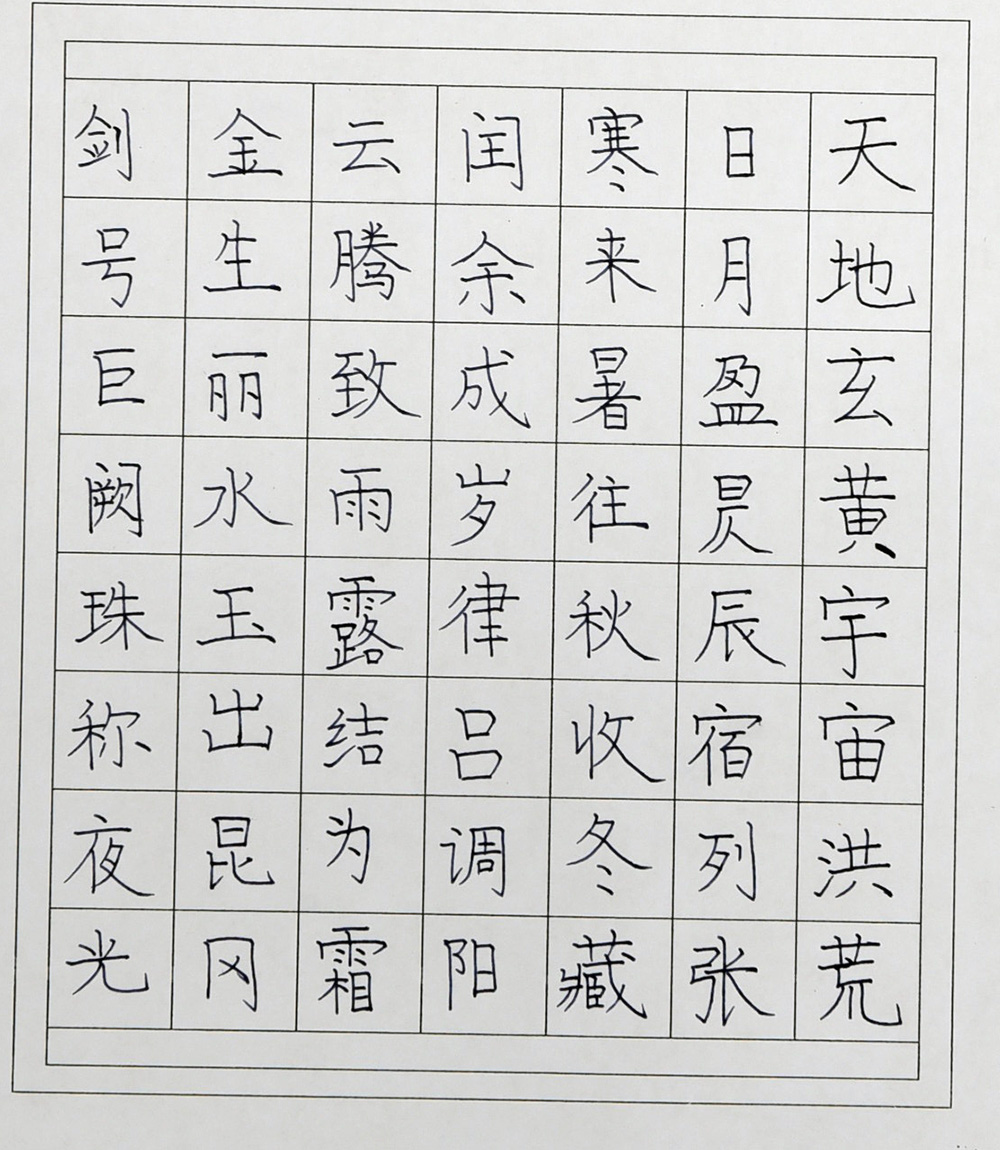 天地玄黄宇宙洪荒
日月盈昃辰宿列张
寒来暑往秋收冬藏
闰余成岁律吕调阳
云腾致雨露结为霜
金生丽水玉出昆冈
剑号巨阙珠称夜光